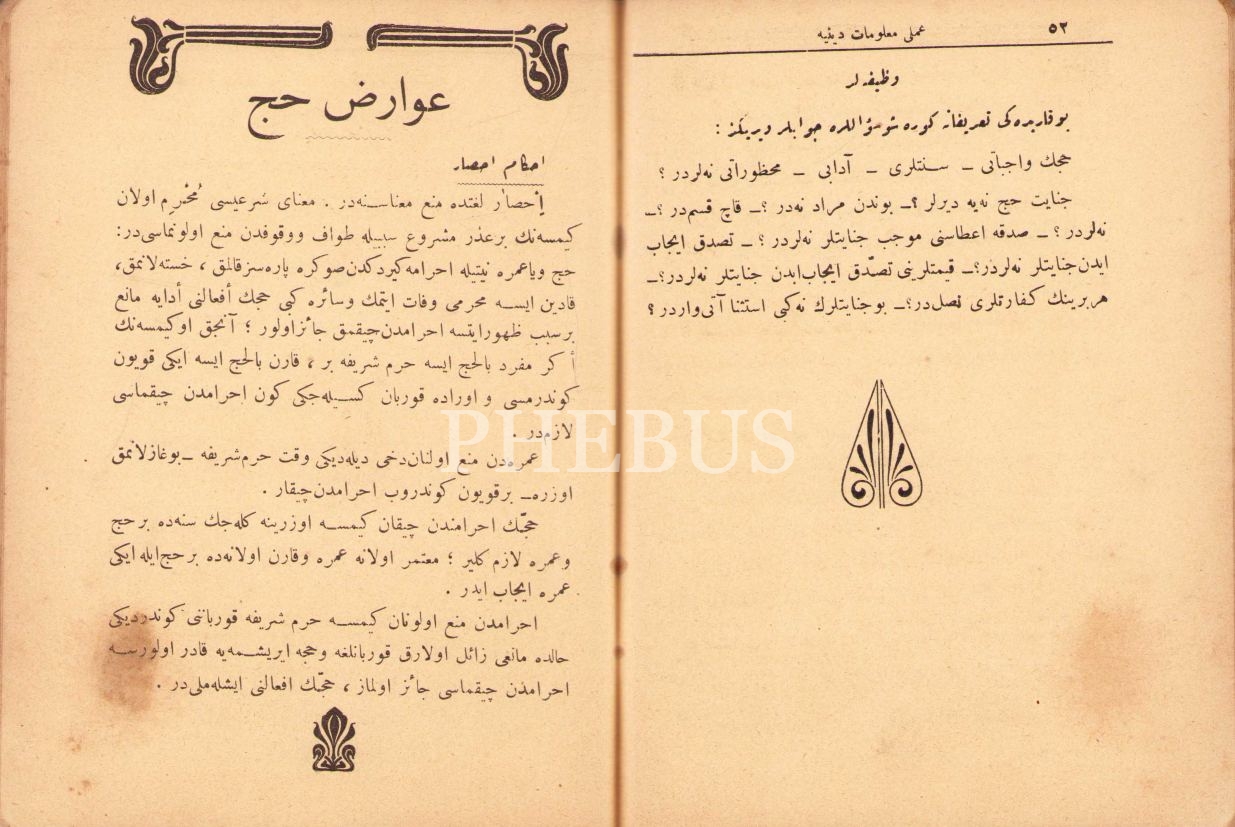 ٥٢ عملی معلومات دینیه
وظیفه لر
بوقاریده کی تعریفاته کوره شو سؤاللره جوابلر ویریكز :
حجك واجباتی ــ سنتلری ــ آدابی ــ محظوراتی نه‌لردر ؟
جنایت حج نه‌یه دیرلر ؟ــ بوندن مراد نه‌در ؟ــ قاچ قسم‌در ؟ــ
نه‌لردر ؟ ــ صدقه اعطاسنی موجب جنایتلر نه‌لردر ؟ ــ تصدق ایجاب
ایدن‌جنایتلر نه‌لردر؟ــ قیمتلرینی تصدّق ایجاب‌ایدن جنایتلر نه‌لردر؟ــ
هربرینك کفارتلری نصل‌در؟ــ بوجنایتلرك نه‌کبی استثنا آتی‌واردر ؟
عوارض حج
احکام احصار
إحصار لغتده منع معناسنه‌در . معنای شرعیسی مُحْرِم اولان
کیمسه‌نك برعذر مشروع سببیله طواف ووقوفدن منع اولونماسی‌در:
حج ویاعمره نیتیله احرامه‌کیردکدن‌صوکره پاره‌سزقالمق ، خسته‌لانمق،
قادین ایسه محرمی وفات ایتمك وسائره کبی حجك أفعالنی أدایه مانع
برسبب ظهورایتسه احرامدن‌چیقمق جائزاولور ؛ آنجق اوکیمسه‌نك
أکر مفرد بالحج ایسه حرم شریفه بر ، قارن بالحج ایسه ایکی قویون
کوندرمسی و اوراده قوربان کسیله‌جکی کون احرامدن چیقماسی
لازم‌در .
عمره‌دن منع اولنان‌دخی دیله‌دیکی وقت حرم‌شریفه ــ بوغازلانمق
اوزره ــ برقویون کوندروب احرامدن‌چیقار .
حجّك احرامندن چیقان کیمسه اوزرینه کله‌جك سنه‌ده برحج
وعمره لازم کلیر ؛ معتمر اولانه عمره وقارن اولانه‌ده برحج‌ایله ایکی
عمره ایجاب ایدر .
احرامدن منع اولونان کیمسه حرم شریفه قورباننی کوندردیکی
حالده مانعی زائل اولارق قوربانلغه وحجه ایریشمه‌یه قادر اولورسه
احرامدن چیقماسی جائز اولماز ، حجّك افعالنی ایشله‌ملی‌در .
PHEBUS